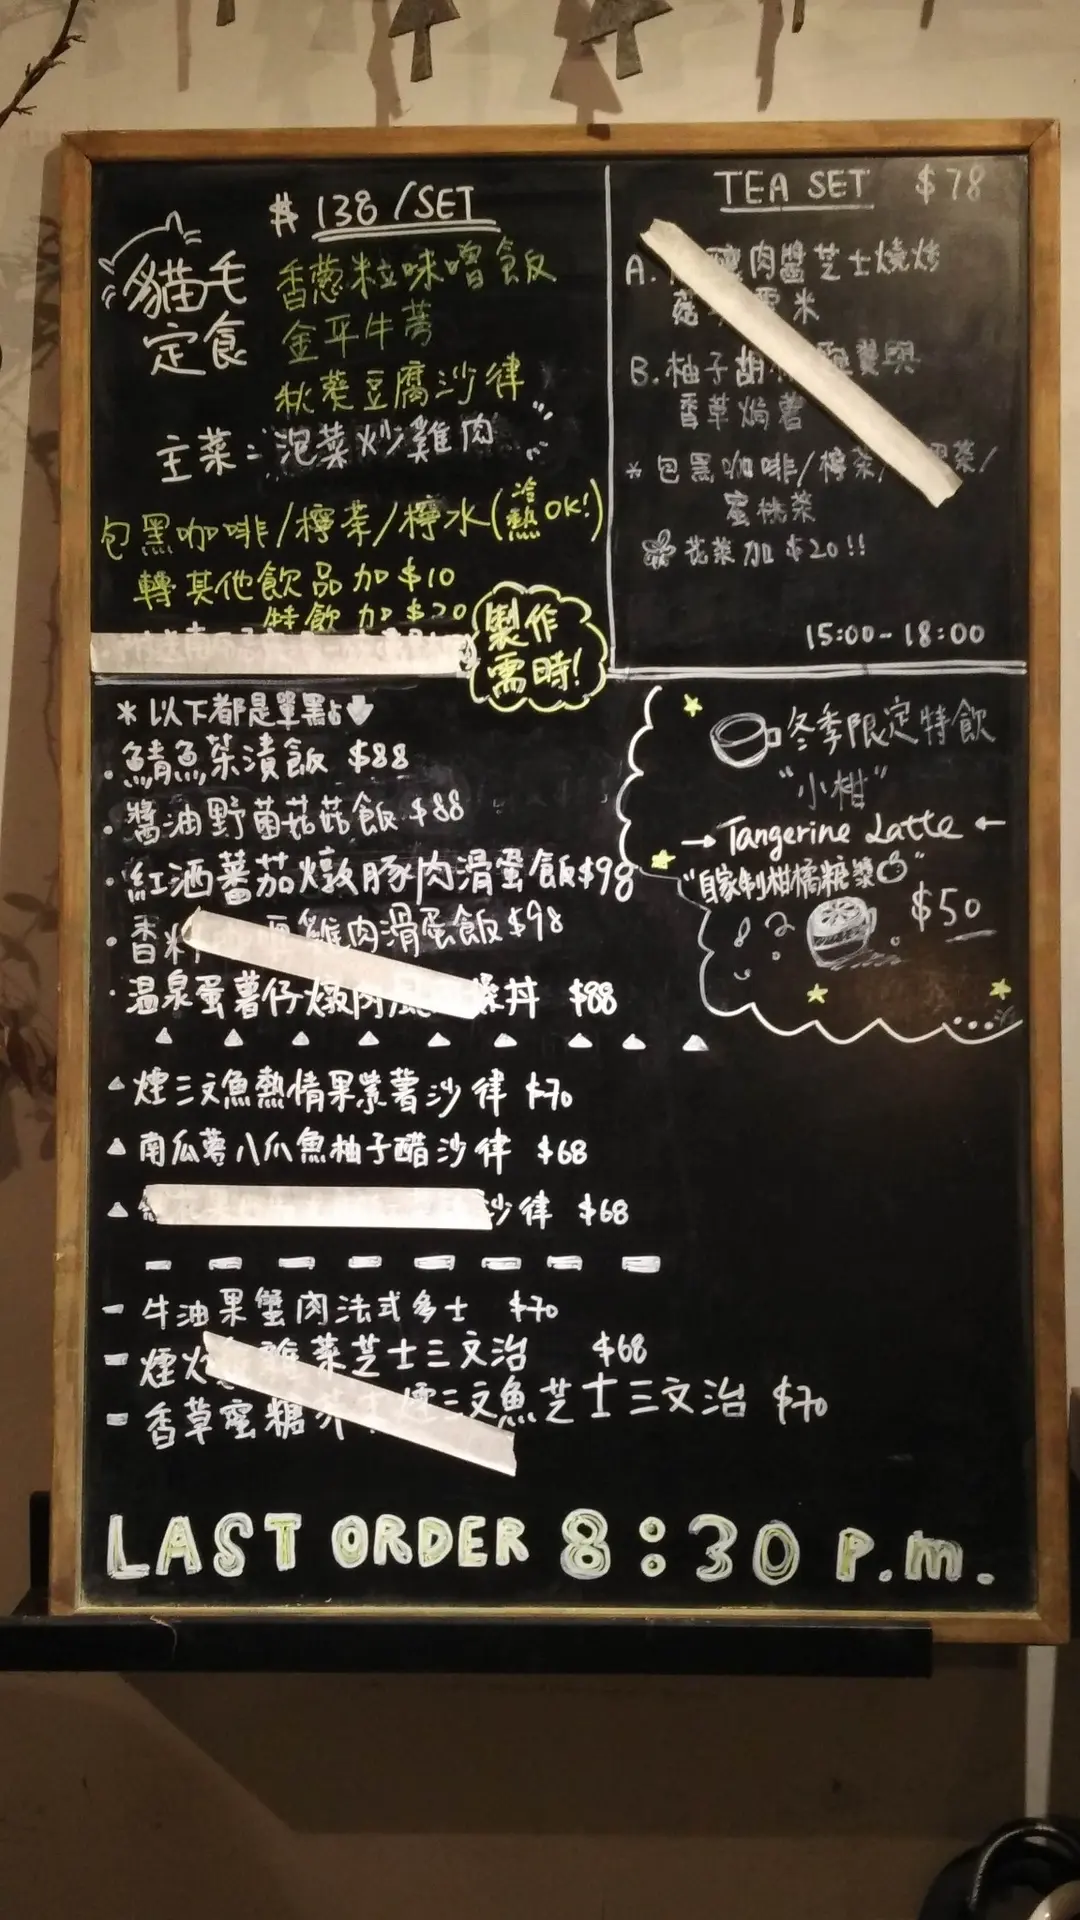 $ 138 /SET
貓毛
定食
香蔥粒味噌飯
金平牛蒡
秋葵豆腐沙律
主菜：泡菜炒雞肉
包黑咖啡/檸茶/檸水(冷熱OK!)
轉其他飲品加$10
特飲加$20
製作
需時!
TEA SET $78
A. 肉醬芝士燒烤
米
B. 柚子胡
香草焗薯
*包黑咖啡/檸茶/
蜜桃茶
花茶加$20!!
15:00-18:00
*以下都是單點
·鯖魚茶漬飯 $88
·醬油野菌菇菇飯 $88
·紅酒蕃茄燉豚肉滑蛋飯$98
·香料 雞肉滑蛋飯$98
·温泉蛋薯仔燉肉 丼 $88
冬季限定特飲
"小柑"
→ Tangerine Latte ←
"自家制柑橘糖漿"
$50
▲煙三文魚熱情果紫薯沙律 $70
▲南瓜薯八爪魚柚子醋沙律 $68
▲ 沙律 $68
- 牛油果蟹肉法式多士 $70
- 煙火 菜芝士三文治 $68
- 香草蜜糖芥 煙三文魚芝士三文治 $70
LAST ORDER 8:30 P.m.